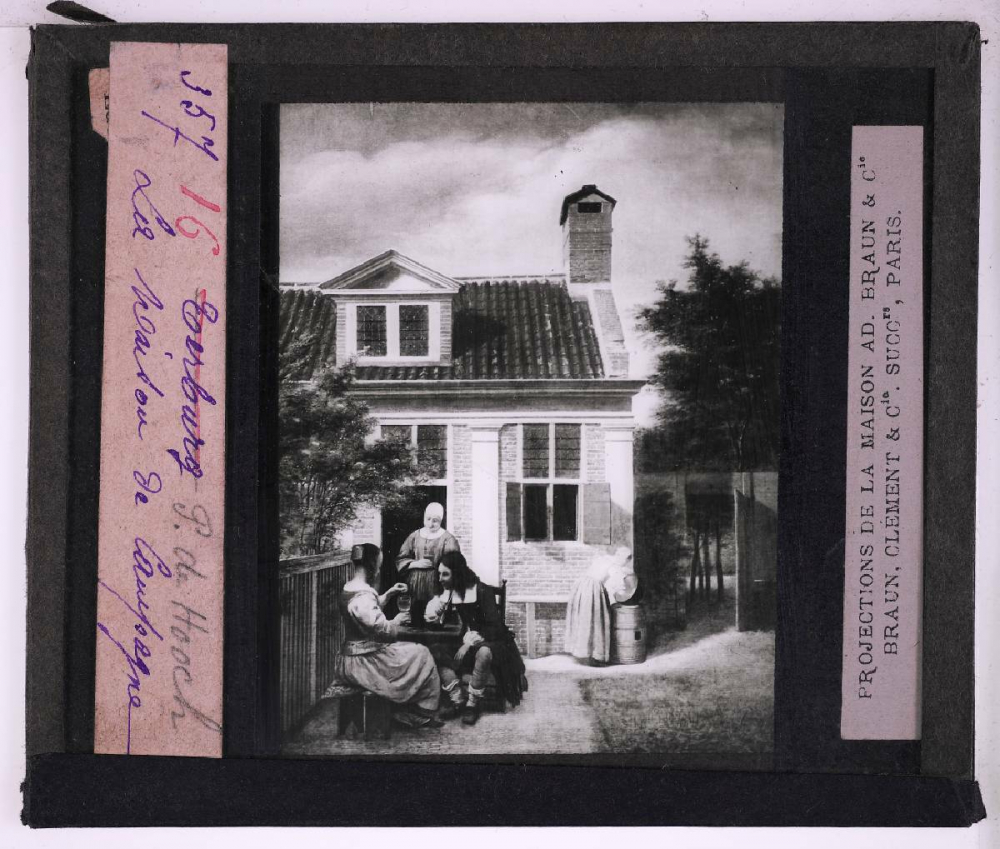 357 16 Terburg P. de Hooch
La maison de Campagne
PROJECTIONS DE LA MAISON AD. BRAUN & Cie
BRAUN, CLÉMENT & Cie. SUCCrs, PARIS.